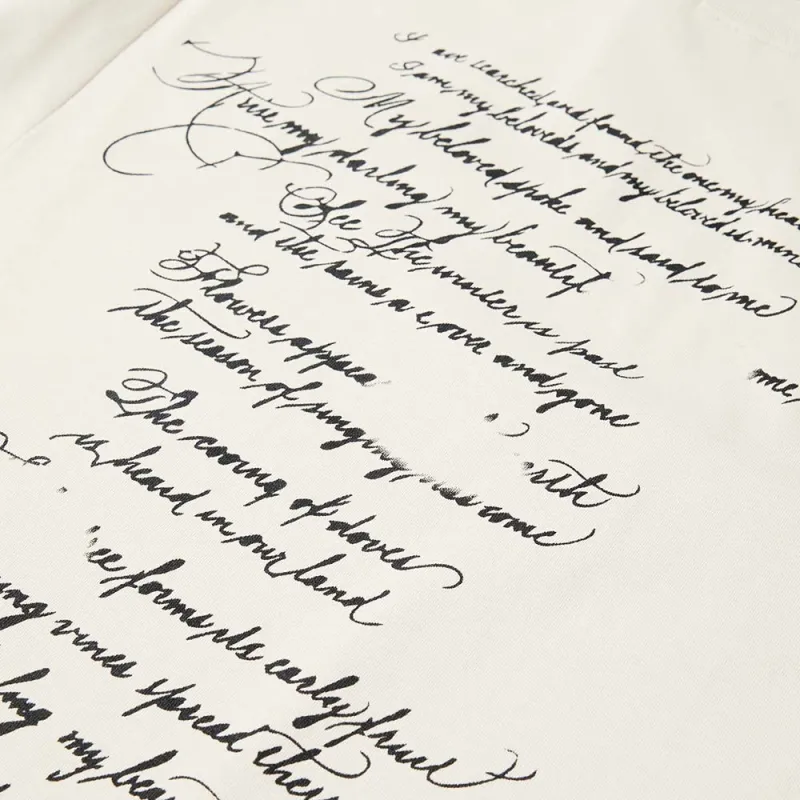 I have searched and found the one my hear
I am my beloveds and my beloved is mine
My beloved spoke and said to me
Arise my darling my beautif
me,
See The winter is past
and the rains a e over and gone
Flowers appea rth
the season of singing has come
The cooing of doves
is heard in our land
ee forms its early fruit
ing vines spread their
ling my bea